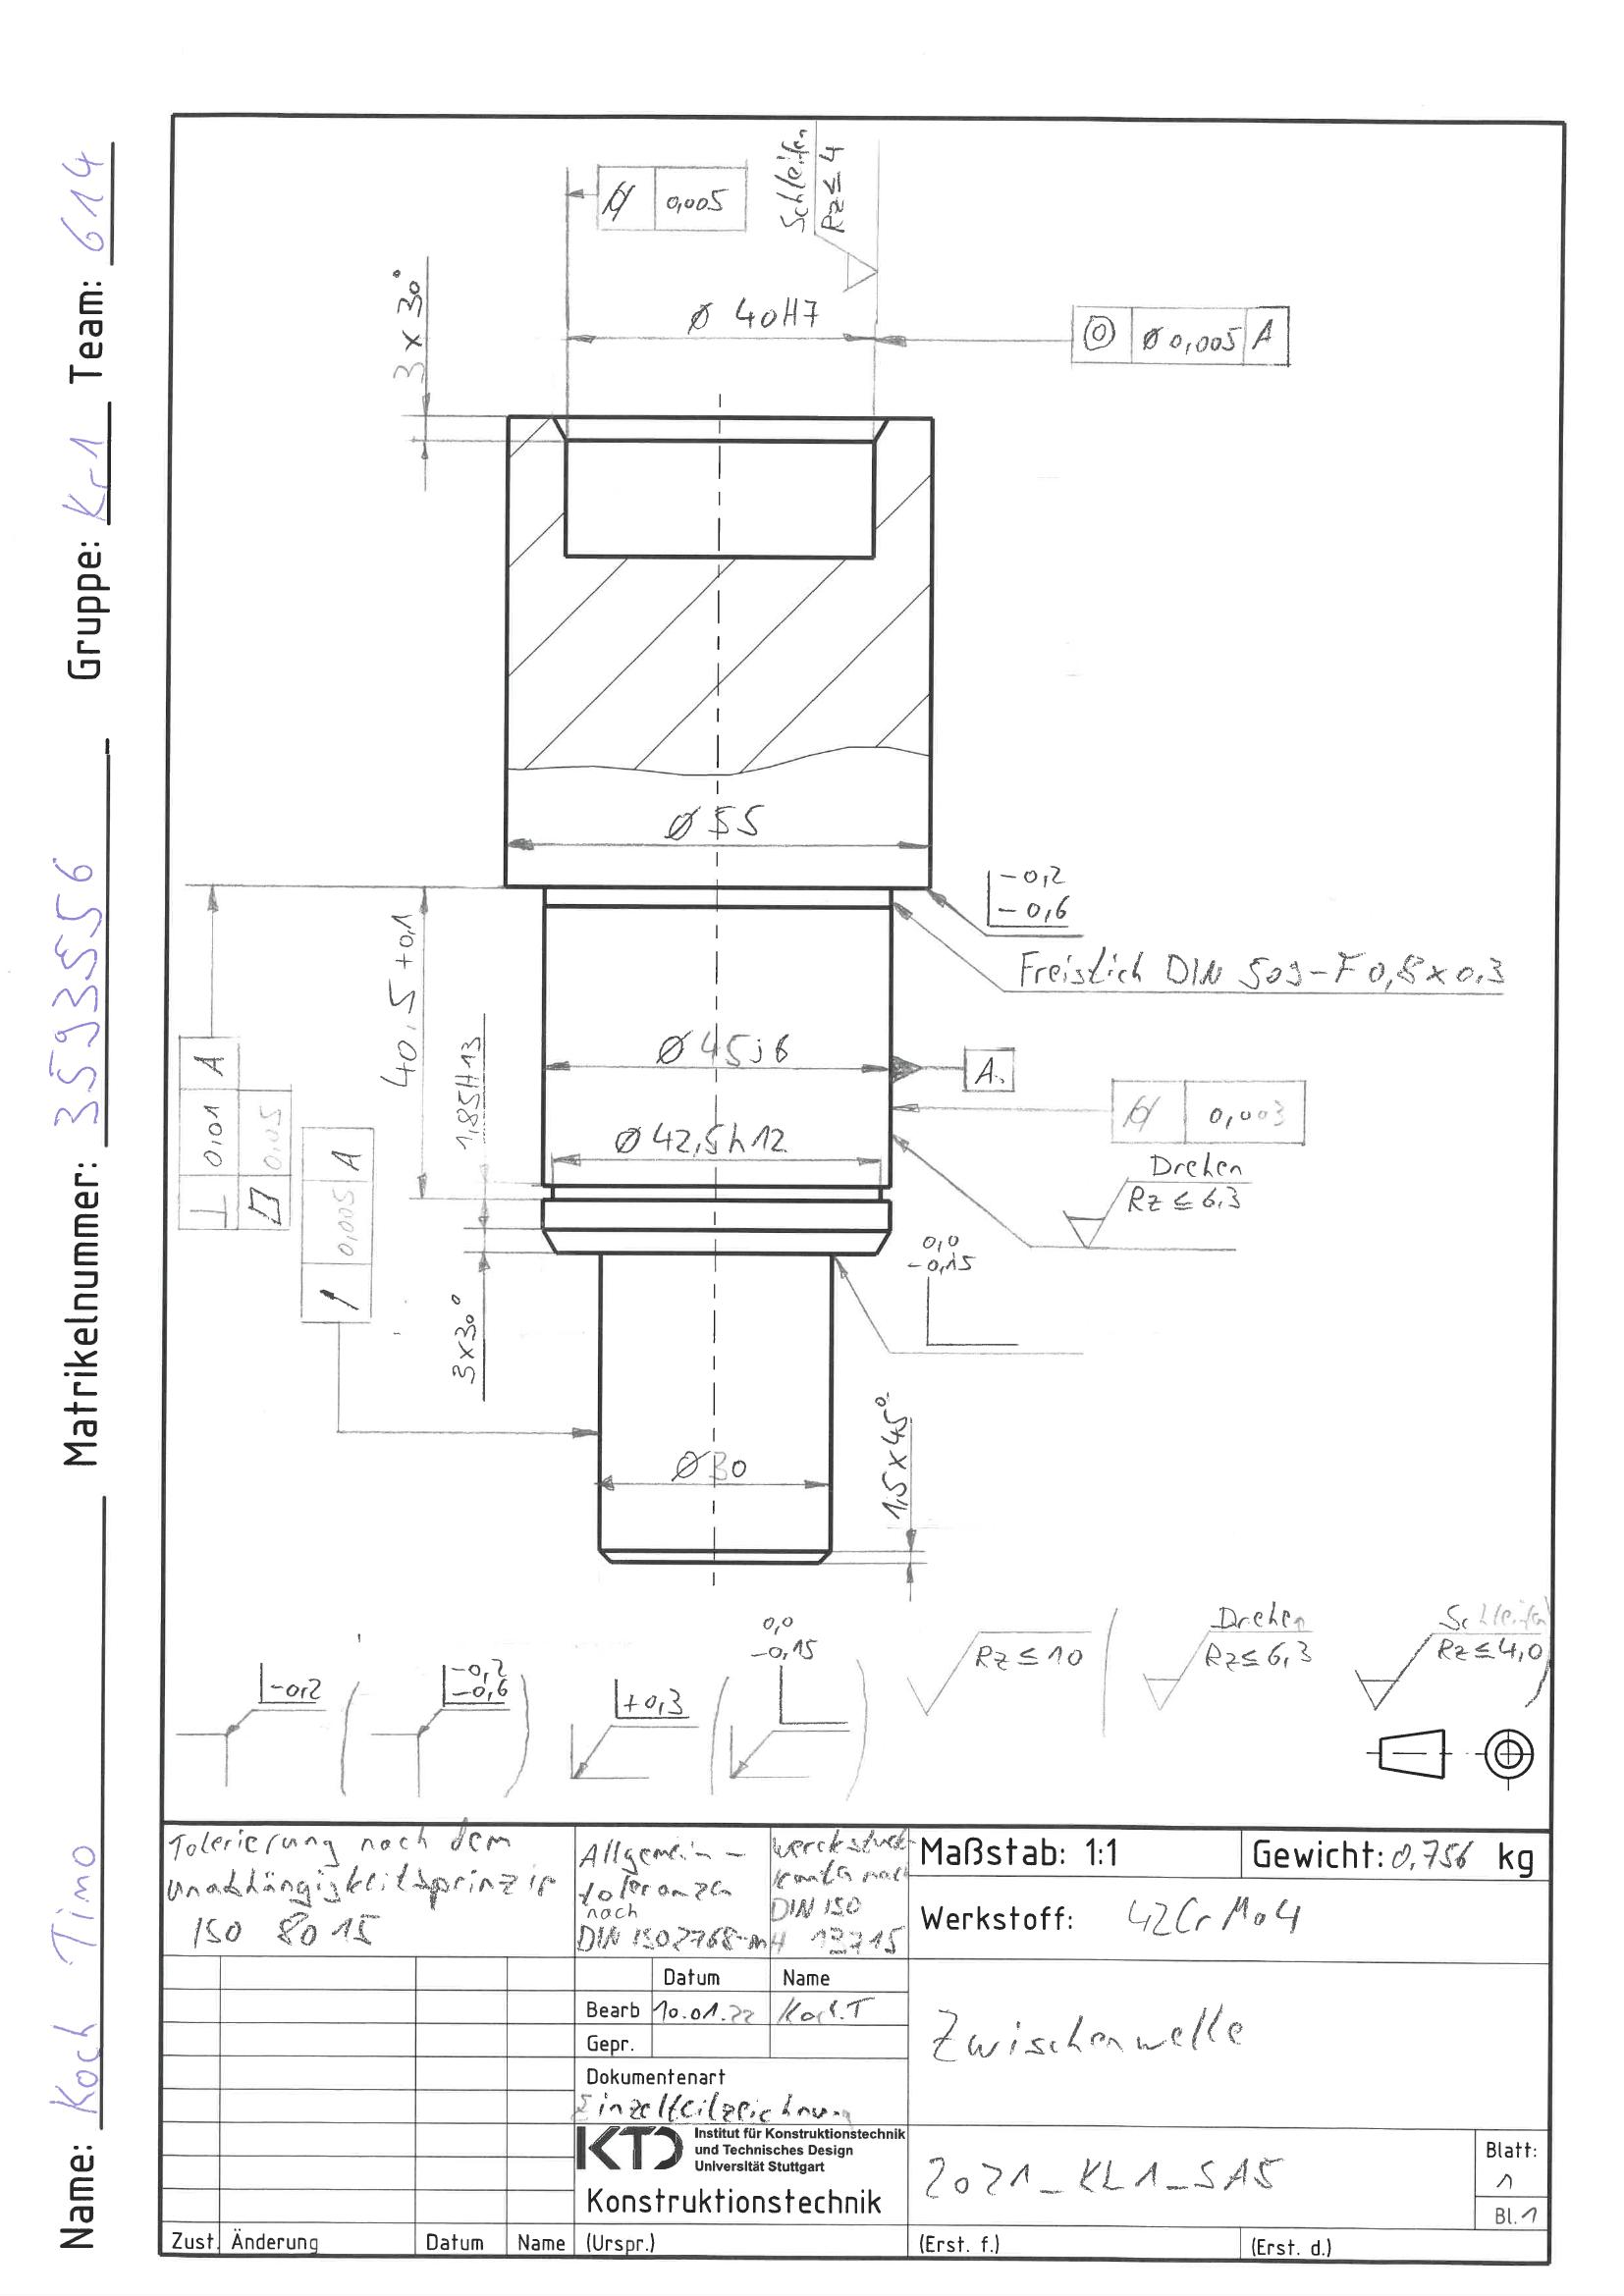 Name: Koch Timo Matrikelnummer: 3593556 Gruppe: Kr1 Team: 614
0,005
Schleifen
Rz ≤ 4
3 x 30°
Ø 40H7
Ø 0,005 A
Ø 55
-0,2
-0,6
Freistich DIN 509-F 0,8 x 0.3
40,5 +0,1
1,85H13
Ø 45j6
A
0,01 A
0,05
0,005 A
0,003
Ø 42,5h12
Drehen
Rz ≤ 6,3
0,0
-0,15
3x30°
1,5 x 45°
Ø 30
-0,2
-0,2
-0,6
+0,3
0,0
-0,15
Rz ≤ 10
Drehen
Rz ≤ 6,3
Schleifen
Rz ≤ 4,0
Tolerierung nach dem
Unabhängigkeitsprinzip
ISO 8015
Allgemein-
toleranzen
nach
DIN ISO 2768-mH
Werckstück
kanten nach
DIN ISO
13715
Maßstab: 1:1
Gewicht: 0,756 kg
Werkstoff: 42CrMo4
Datum Name
Bearb 10.01.22 Koch.T
Gepr.
Dokumentenart
Einzelteilzeichnung
Zwischenwelle
KTD
Institut für Konstruktionstechnik
und Technisches Design
Universität Stuttgart
Konstruktionstechnik
2021_KL1_SA5
Blatt:
1
Bl. 1
Zust. Änderung Datum Name (Urspr.) (Erst. f.) (Erst. d.)